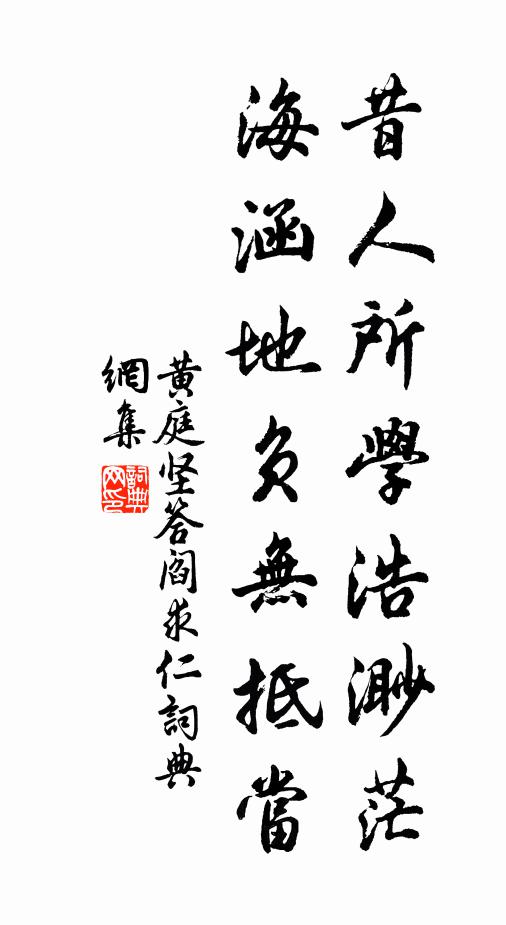 昔人所學浩渺茫
海涵地負無抵當
黄庭坚答阎求仁詞典
網集
詞典網印